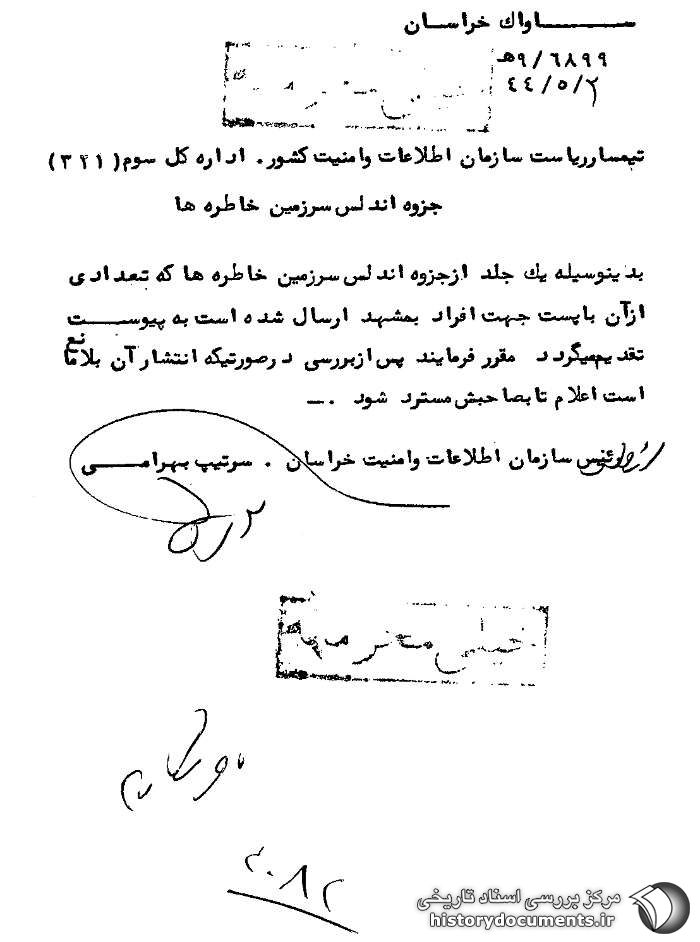 ســـاواك خراسـان
۹/۶۸۹۹هـ
۴۴/۵/۲
خیلی محرمانه
تیمسارریاست سازمان اطلاعات وامنیت کشور . اداره کل سوم(۳۲۱)
جزوه اندلس سرزمین خاطره ها
بدینوسیله یك جلد ازجزوه اندلس سرزمین خاطره ها که تعدادی
ازآن باپست جهت افراد بمشهد ارسال شده است به پیوســت
تقدیم میگردد مقرر فرمایند پس ازبررسی درصورتیکه انتشارآن بلامانع
است اعلام تابصاحبش مسترد شود .ــ
رئیس سازمان اطلاعات وامنیت خراسان . سرتیپ بهرامــی
خیلی محرمانه
مرکز بررسی اسناد تاریخی
historydocuments.ir